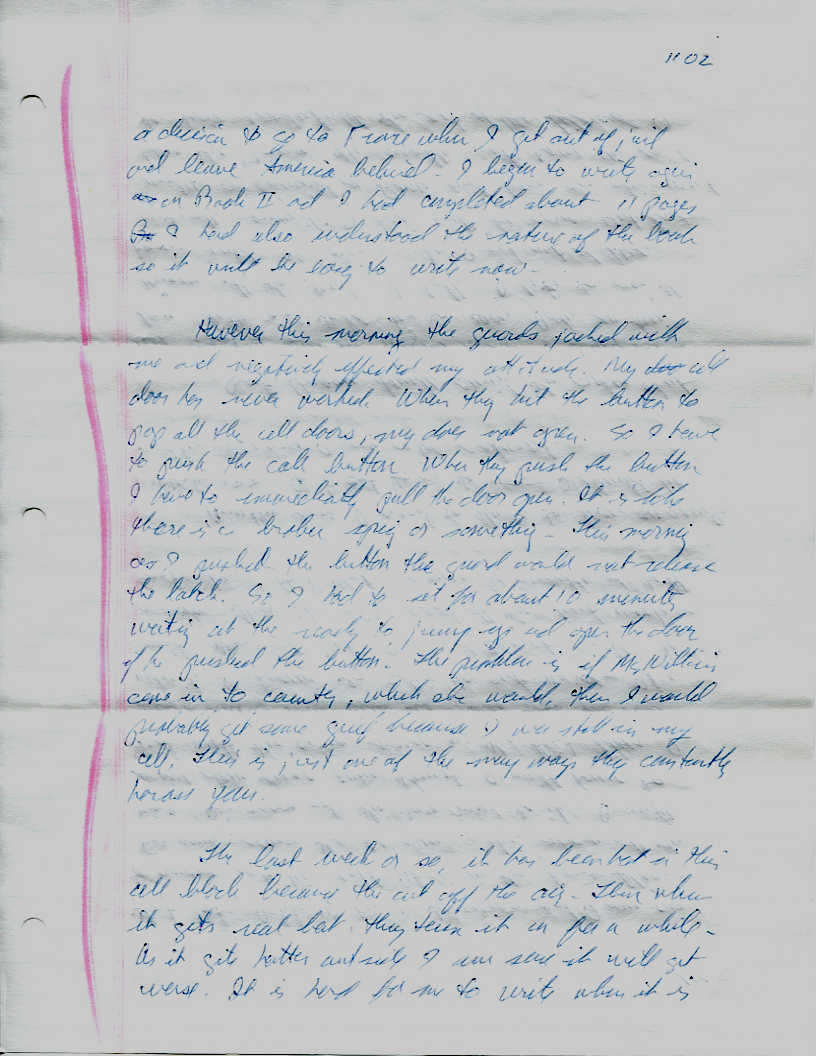 1102
a decision to go to France when I get out of jail
and leave America behind. I began to write again
on Book II and I had completed about 11 pages
I had also understood the nature of the book
so it will be easy to write now.
However this morning, the guards jacked with
me and negatively effected my attitude. My cell
door has never worked. When they hit the button to
pop all the cell doors, my does not open. So I have
to push the call button. When they push the button
I have to immediately pull the door open. It is like
there is a broken spring or something. This morning
as I pushed the button the guard would not release
the latch. So I had to sit for about 10 minutes
waiting at the ready to jump up and open the door
if he pushed the button. The problem is if Ms. Willis
came in to count, which she would, then I would
probably get some grief because I was still in my
cell. This is just one of the many ways they constantly
harass you.
The last week or so, it has been hot in this
cell block because the cut off the air. Then when
it gets real hot, they turn it on for a while.
As it gets hotter outside I am sure it will get
worse. It is hard for me to write when it is